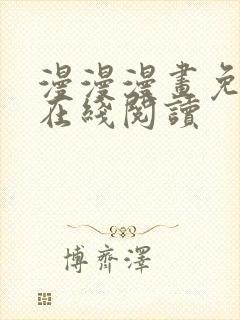 漫漫漫畫免
在綫閱讀
博齊澤